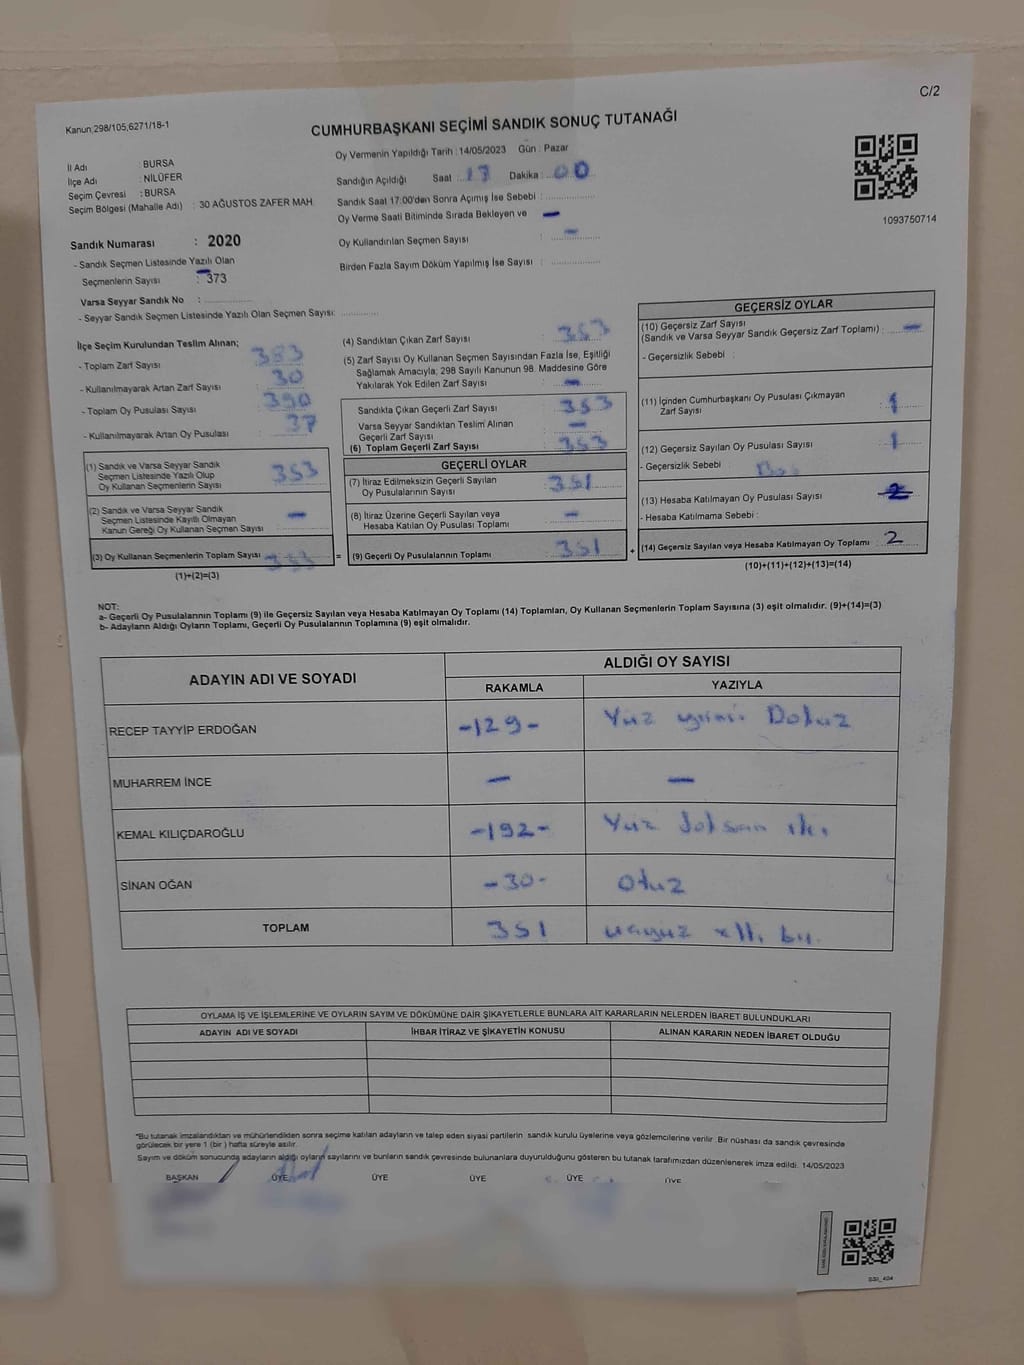 C/2
Kanun;298/105;6271/18-1
CUMHURBAŞKANI SEÇİMİ SANDIK SONUÇ TUTANAĞI
İl Adı : BURSA
İlçe Adı : NİLÜFER
Seçim Çevresi : BURSA
Seçim Bölgesi (Mahalle Adı) : 30 AĞUSTOS ZAFER MAH.
Sandık Numarası : 2020
- Sandık Seçmen Listesinde Yazılı Olan
Seçmenlerin Sayısı : 373
Varsa Seyyar Sandık No :
- Seyyar Sandık Seçmen Listesinde Yazılı Olan Seçmen Sayısı:
Oy Vermenin Yapıldığı Tarih : 14/05/2023 Gün : Pazar
Sandığın Açıldığı Saat : 17 Dakika : 00
Sandık Saat 17:00'den Sonra Açımış İse Sebebi :
Oy Verme Saati Bitiminde Sırada Bekleyen ve —
Oy Kullandırılan Seçmen Sayısı : —
Birden Fazla Sayım Döküm Yapılmış İse Sayısı :
1093750714
İlçe Seçim Kurulundan Teslim Alınan;
- Toplam Zarf Sayısı : 383
- Kullanılmayarak Artan Zarf Sayısı : 30
- Toplam Oy Pusulası Sayısı : 390
- Kullanılmayarak Artan Oy Pusulası : 37
(1) Sandık ve Varsa Seyyar Sandık
Seçmen Listesinde Yazılı Olup
Oy Kullanan Seçmenlerin Sayısı : 353
(2) Sandık ve Varsa Seyyar Sandık
Seçmen Listesinde Kayıtlı Olmayan
Kanun Gereği Oy Kullanan Seçmen Sayısı : —
(3) Oy Kullanan Seçmenlerin Toplam Sayısı : 353 =
(1)+(2)=(3)
(4) Sandıktan Çıkan Zarf Sayısı : 353
(5) Zarf Sayısı Oy Kullanan Seçmen Sayısından Fazla İse, Eşitliği
Sağlamak Amacıyla; 298 Sayılı Kanunun 98. Maddesine Göre
Yakılarak Yok Edilen Zarf Sayısı : —
Sandıkta Çıkan Geçerli Zarf Sayısı : 353
Varsa Seyyar Sandıktan Teslim Alınan
Geçerli Zarf Sayısı : —
(6) Toplam Geçerli Zarf Sayısı : 353
GEÇERLİ OYLAR
(7) İtiraz Edilmeksizin Geçerli Sayılan
Oy Pusulalarının Sayısı : 351
(8) İtiraz Üzerine Geçerli Sayılan veya
Hesaba Katılan Oy Pusulası Toplamı : —
(9) Geçerli Oy Pusulalarının Toplamı : 351 +
GEÇERSİZ OYLAR
(10) Geçersiz Zarf Sayısı
(Sandık ve Varsa Seyyar Sandık Geçersiz Zarf Toplamı) : —
- Geçersizlik Sebebi :
(11) İçinden Cumhurbaşkanı Oy Pusulası Çıkmayan
Zarf Sayısı : 1
(12) Geçersiz Sayılan Oy Pusulası Sayısı : 1
- Geçersizlik Sebebi :
(13) Hesaba Katılmayan Oy Pusulası Sayısı :
- Hesaba Katılmama Sebebi :
(14) Geçersiz Sayılan veya Hesaba Katılmayan Oy Toplamı : 2
(10)+(11)+(12)+(13)=(14)
NOT:
a- Geçerli Oy Pusulalarının Toplamı (9) ile Geçersiz Sayılan veya Hesaba Katılmayan Oy Toplamı (14) Toplamları, Oy Kullanan Seçmenlerin Toplam Sayısına (3) eşit olmalıdır. (9)+(14)=(3)
b- Adayların Aldığı Oyların Toplamı, Geçerli Oy Pusulalarının Toplamına (9) eşit olmalıdır.
ADAYIN ADI VE SOYADI
ALDIĞI OY SAYISI
RAKAMLA YAZIYLA
RECEP TAYYİP ERDOĞAN -129- Yüz yirmi Dokuz
MUHARREM İNCE — —
KEMAL KILIÇDAROĞLU -192- Yüz doksan iki
SİNAN OĞAN -30- Otuz
TOPLAM 351 üçyüz elli bir
OYLAMA İŞ VE İŞLEMLERİNE VE OYLARIN SAYIM VE DÖKÜMÜNE DAİR ŞİKAYETLERLE BUNLARA AİT KARARLARIN NELERDEN İBARET BULUNDUKLARI
ADAYIN ADI VE SOYADI İHBAR İTİRAZ VE ŞİKAYETİN KONUSU ALINAN KARARIN NEDEN İBARET OLDUĞU
*Bu tutanak imzalandıktan ve mühürlendikten sonra seçime katılan adayların ve talep eden siyasi partilerin sandık kurulu üyelerine veya gözlemcilerine verilir. Bir nüshası da sandık çevresinde
görülecek bir yere 1 (bir) hafta süreyle asılır.
Sayım ve döküm sonucunda adayların aldığı oyların sayılarını ve bunların sandık çevresinde bulunanlara duyurulduğunu gösteren bu tutanak tarafımızdan düzenlenerek imza edildi. 14/05/2023
BAŞKAN ÜYE ÜYE ÜYE ÜYE ÜYE